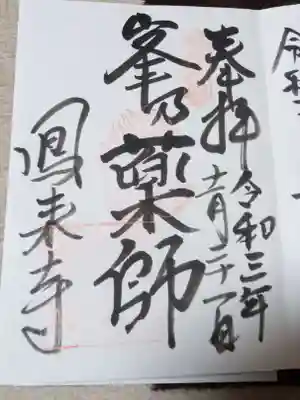 奉拝
令和三年
十一月二十一日
峯乃薬師
鳳来寺
令和